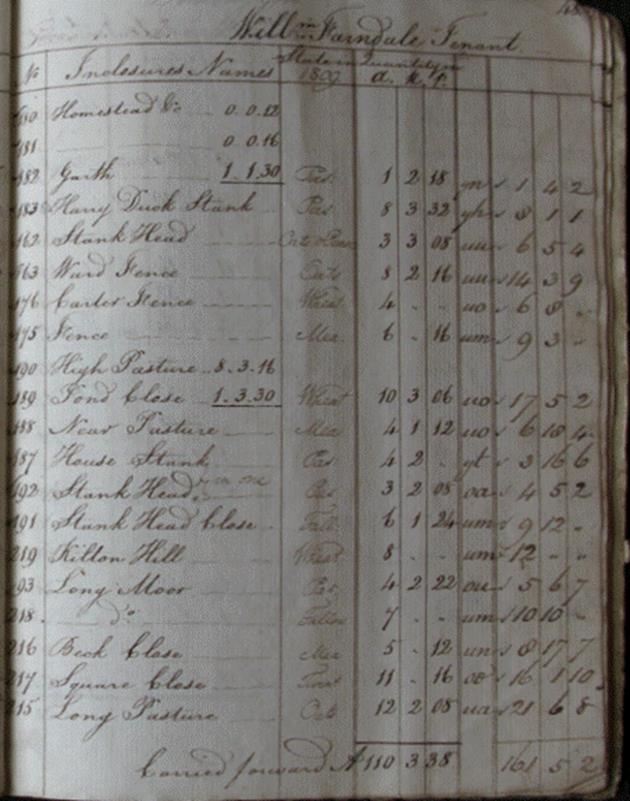 Will.m Farndale Tenant
No Inclosures Names State in 1809 Quantity a. r. p.
180 Homestead &c 0. 0. 12
181 0. 0. 16
182 Garth 1. 1. 30 Pas. 1 2 18 1 4 2
183 Harry Duck Stank Pas. 8 3 32 8 1 1
162 Stank Head Oats & Beans 3 3 08 6 5 4
163 Ward Fence Oats 8 2 16 14 3 9
176 Carter Fence Wheat 4 . . uo 6 8 "
175 Fence Mea. 6 . 16 um 9 3 "
190 High Pasture 8. 3. 16
189 Pond Close 1. 3. 30 Wheat 10 3 06 uo 17 5 2
188 Near Pasture Mea 4 1 12 uo 6 18 4
187 House Stank Pas. 4 2 . yt 3 16 6
192 Stank Head in one Pas. 3 2 08 oa 4 5 2
191 Stank Head Close Fall. 6 1 24 um 9 12 "
219 Kilton Hill Wheat 8 . . um 12 " "
193 Long Moor Pas. 4 2 22 ou 5 6 7
218 do Fallow 7 . . um 10 10 "
216 Beck Close Mea 5 . 12 un 8 17 7
217 Square Close 11 . 16 oo 16 1 10
215 Long Pasture Oat 12 2 08 ua 21 6 8
Carried forward A 110 3 38 161 5 2